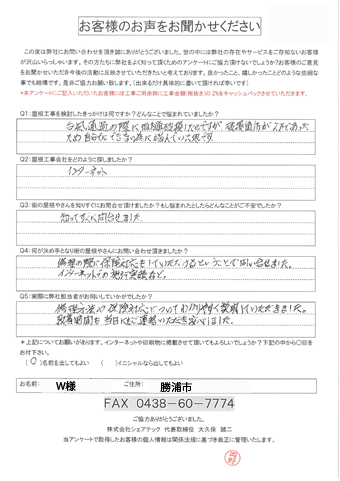 お客様のお声をお聞かせください
この度は弊社にお問い合わせを頂き誠にありがとうございました。世の中には弊社の存在やサービスをご存知ないお客様
が沢山いらっしゃいます。その方たちに弊社をよく知って頂くためのアンケートにご協力頂けないでしょうか？お客様のご意見
をお聞かせいただき今後の活動に反映させていただきたいと考えております。良かったこと、嬉しかったことどのような些細な
事でも結構です。是非ご協力お願い致します。（出来るだけ具体的に書いて頂ければ幸いです）
*本アンケートにご記入いただいたお客様には工事ご用命時に工事金額（税抜き）の2%をキャッシュバックさせていただきます。
Q1：屋根工事を検討したきっかけは何ですか？どんなことで悩まれていましたか？
台風通過の際に
ため自分ではできない為に悩んでいた次第です。
Q2：屋根工事会社をどのように探しましたか？
インターネット
Q3：街の屋根やさんを知りすぐにお問合せ頂けましたか？もし悩まれたとしたらどんなことがご不安でしたか？
知ってすぐに問合せました。
Q4：何が決め手となり街の屋根やさんにお問い合わせ頂きましたか？
修理の際に保険対応をしていただけるということで問い合せました。
インターネットでの施行実績など。
Q5：実際に弊社担当者がお伺いしていかがでしたか？
修理方法や保険対応についてわかりやすく説明していただきました。
到着時間も当日にもご連絡いただき安心しました。
＊上記についてお願いがあります。インターネットや印刷物に掲載させて頂いてもよろしいでしょうか？下記の中から〇印を
お付下さい。
（〇）名前を出してもよい （ ）イニシャルなら出してもよい
お名前： W様 ご住所： 勝浦市
FAX 0438-60-7774
ご協力ありがとうございました。
株式会社シェアテック 代表取締役 大久保 誠二
当アンケートで取得したお客様の個人情報は関係法規に基づき厳正に管理いたします。